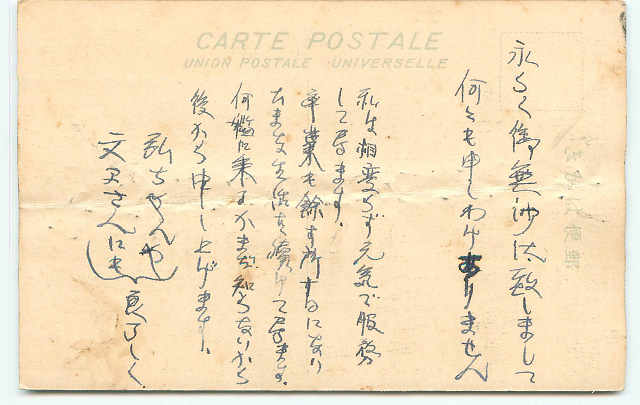 CARTE POSTALE
UNION POSTALE UNIVERSELLE
永らく御無沙汰致しまして
何とも申しわけありません
私は相変らず元気で服務
して居ます。
卒業も餘す所 になり
 生活を続けて居ます。
何艦に乗るかまだ知らないから
後から申し上げます。
弘ちゃんや
文子さんにも
良ろしく